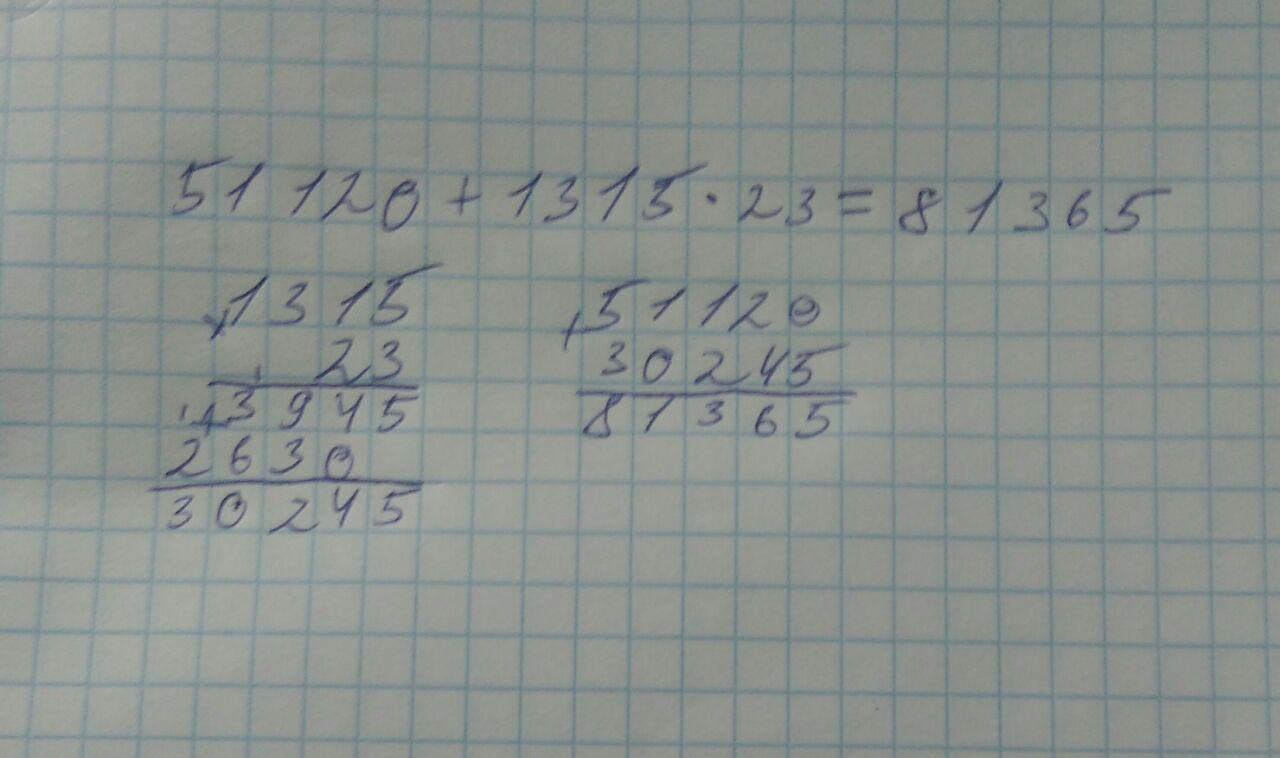 51 120 + 1315 · 23 = 81365
×1315
23
+3945
2630
30245
+51120
30245
81365